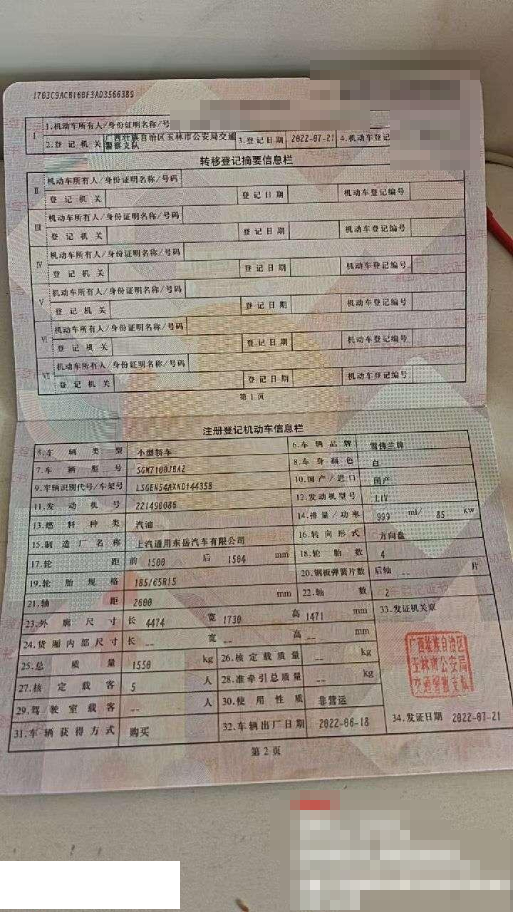 1.机动车所有人/身份证明名称/号
2.登记机关 广西壮族自治区玉林市公安局交通警察支队 3.登记日期 2022-07-21 4.机动车
转移登记摘要信息栏
II 机动车所有人/身份证明名称/号码
登记机关 登记日期 机动车登记编号
III 机动车所有人/身份证明名称/号码
登记机关 登记日期 机动车登记编号
IV 机动车所有人/身份证明名称/号码
登记机关 登记日期 机动车登记编号
V 机动车所有人/身份证明名称/号码
登记机关 登记日期 机动车登记编号
VI 机动车所有人/身份证明名称/号码
登记机关 登记日期 机动车登记编号
VII 机动车所有人/身份证明名称/号码
登记机关 登记日期 机动车登记编号
第1页
注册登记机动车信息栏
5.车辆类型 小型轿车 6.车辆品牌 雪佛兰牌
7.车辆型号 8.车身颜色 白
9.车辆识别代号/车架号 10.国产/进口 国产
11.发动机号 221490086 12.发动机型号
13.燃料种类 汽油 14.排量/功率 999 ml/ 85 kw
15.制造厂名称 上汽通用东岳汽车有限公司 16.转向形式 方向盘
17.轮距 前 1500 后 1504 mm 18.轮胎数 4
19.轮胎规格 185/65R15 20.钢板弹簧片数 后轴 -- 片
21.轴距 2600 mm 22.轴数 2
23.外廓尺寸 长 4474 宽 1730 高 1471 mm 33.发证机关章
24.货厢内部尺寸 长 -- 宽 -- 高 -- mm
25.总质量 1550 kg 26.核定载质量 -- kg
27.核定载客 5 人 28.准牵引总质量 -- kg
29.驾驶室载客 -- 人 30.使用性质 非营运
31.车辆获得方式 购买 32.车辆出厂日期 2022-06-18 34.发证日期 2022-07-21
广西壮族自治区
玉林市公安局
交通警察支队
第2页